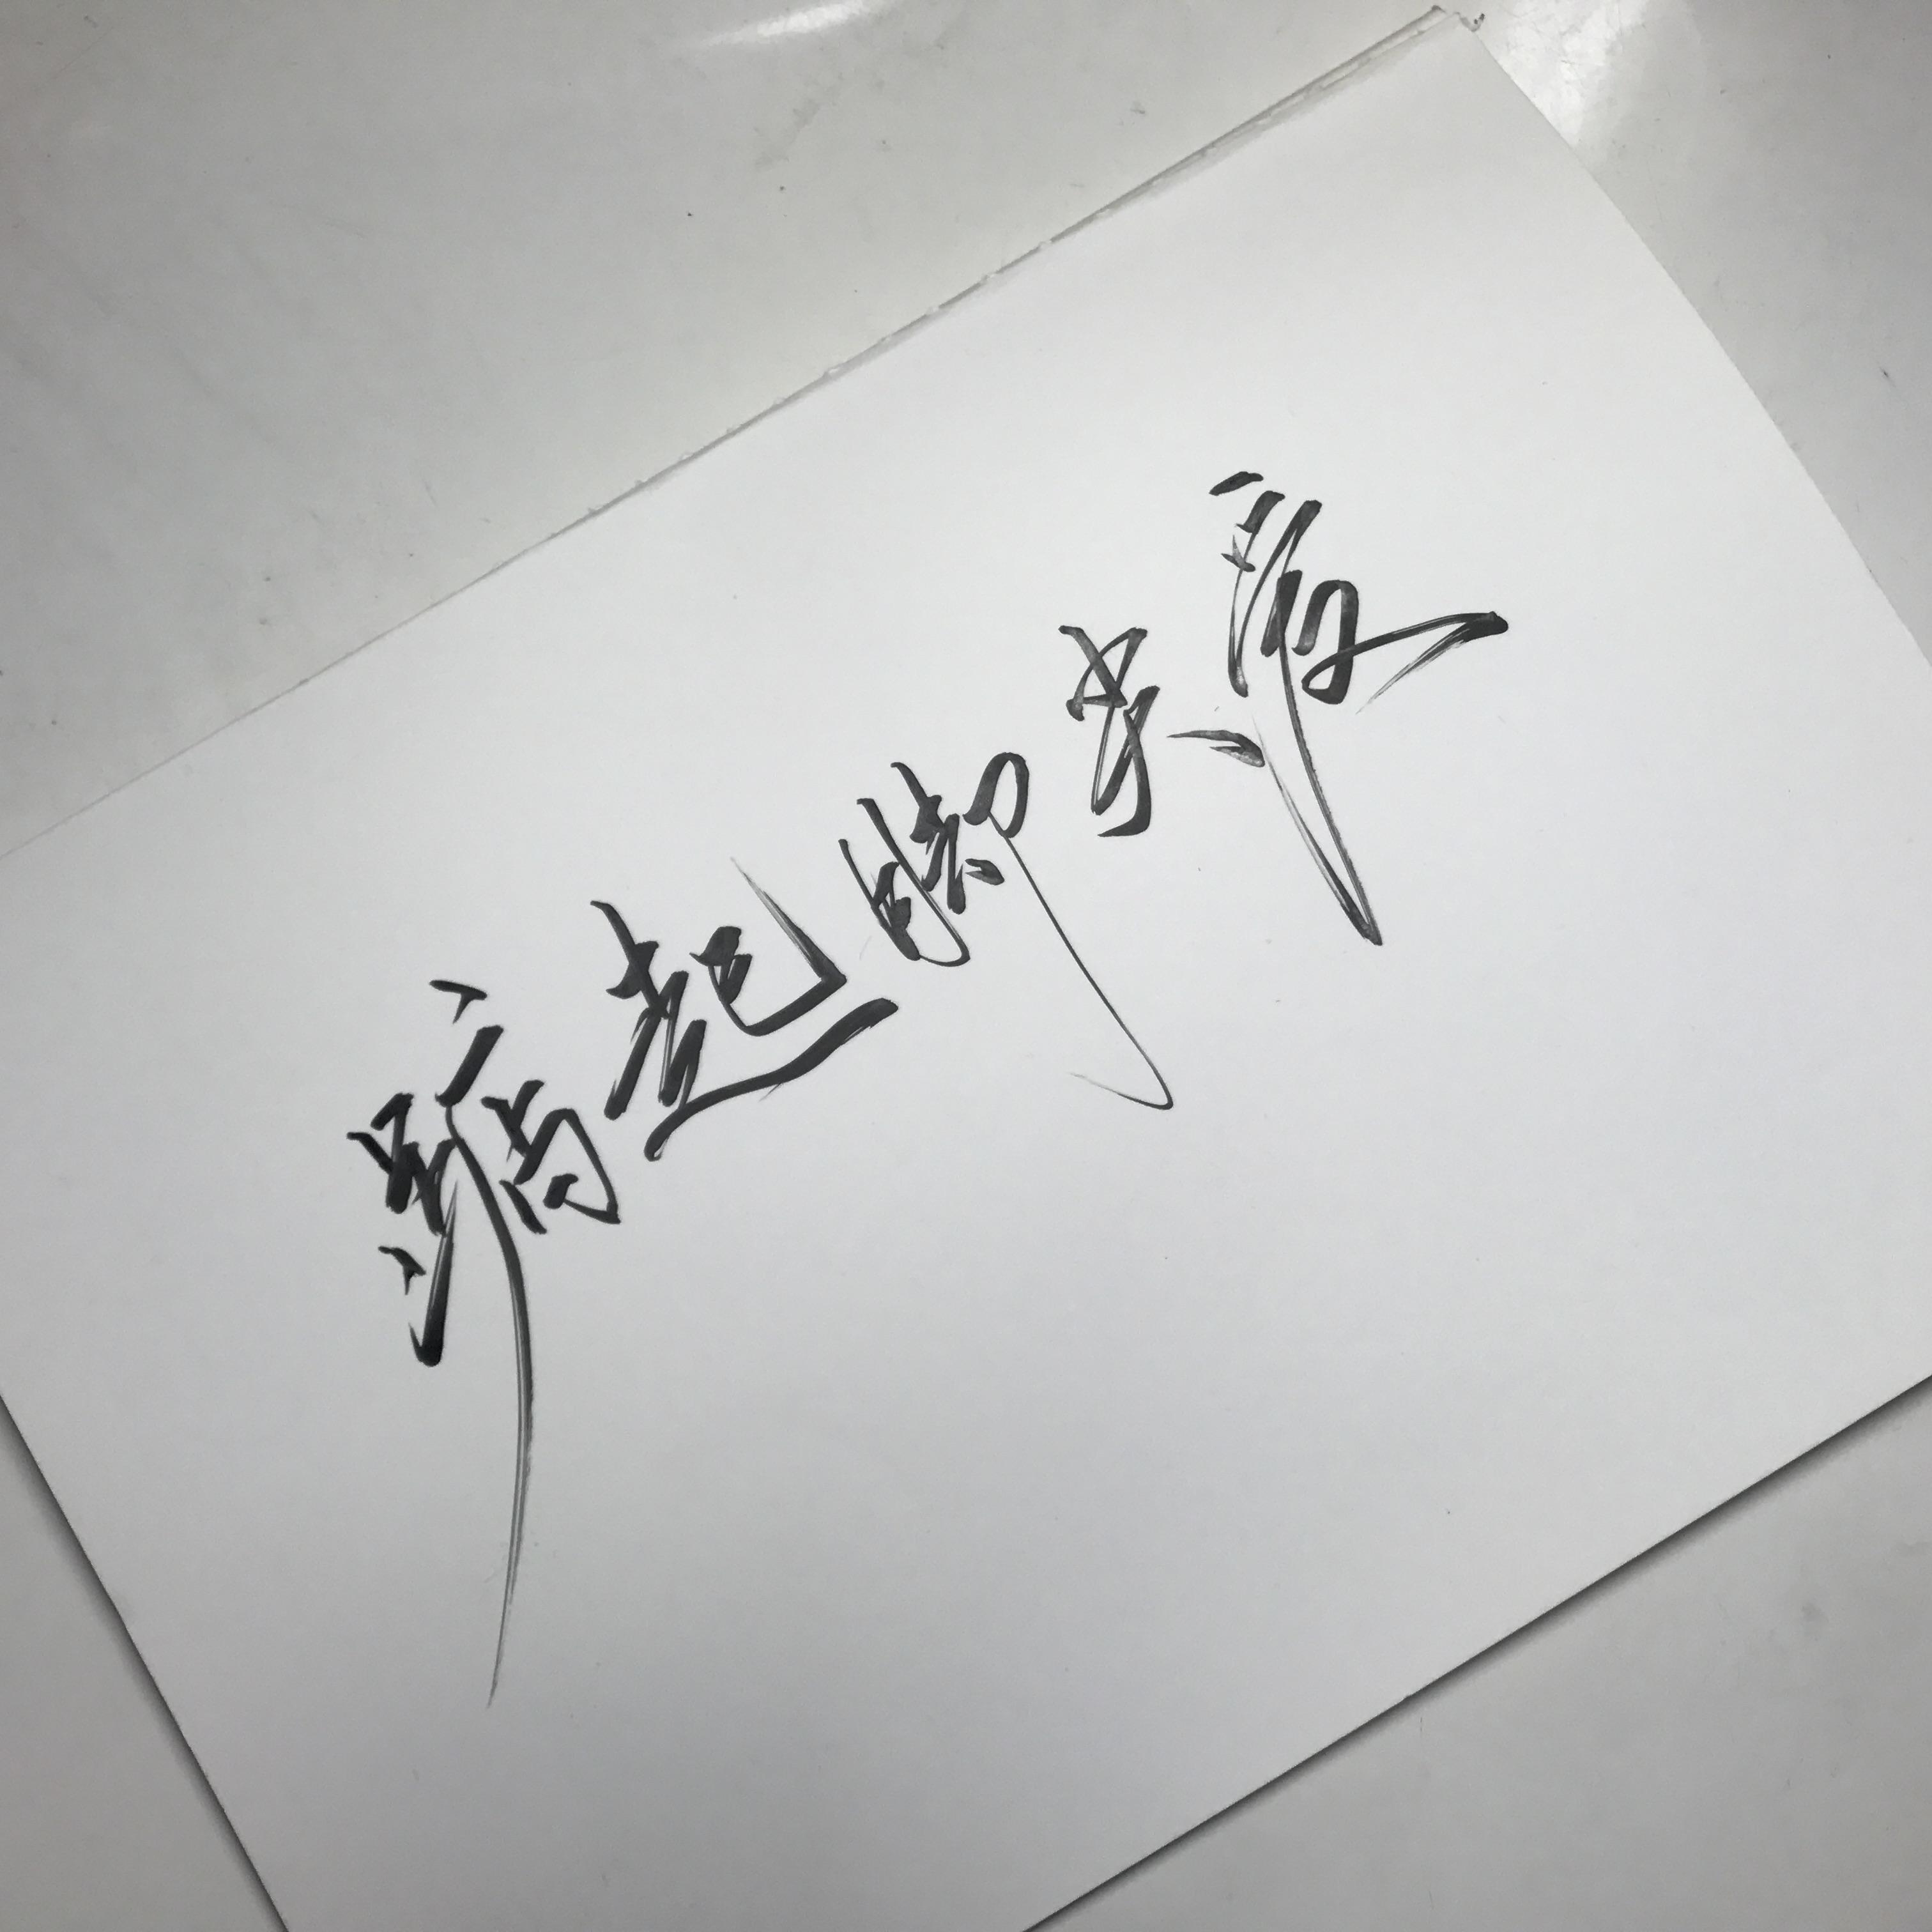 踮起脚尖爱